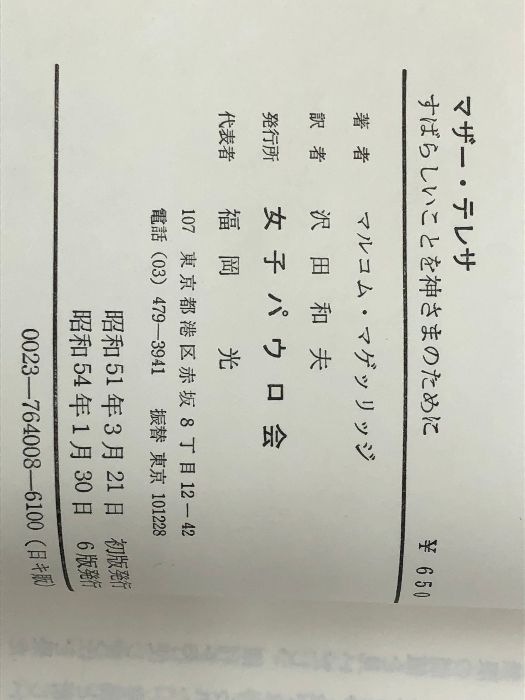 マザー・テレサ
すばらしいことを神さまのために
¥650
著者 マルコム・マゲッリッジ
訳者 沢田和夫
発行所 女子パウロ会
代表者 福岡光
107 東京都港区赤坂8丁目12-42
電話(03)479-3941 振替 東京 101228
昭和51年3月21日 初版発行
昭和54年1月30日 6版発行
0023-764008-6100(日キ販)